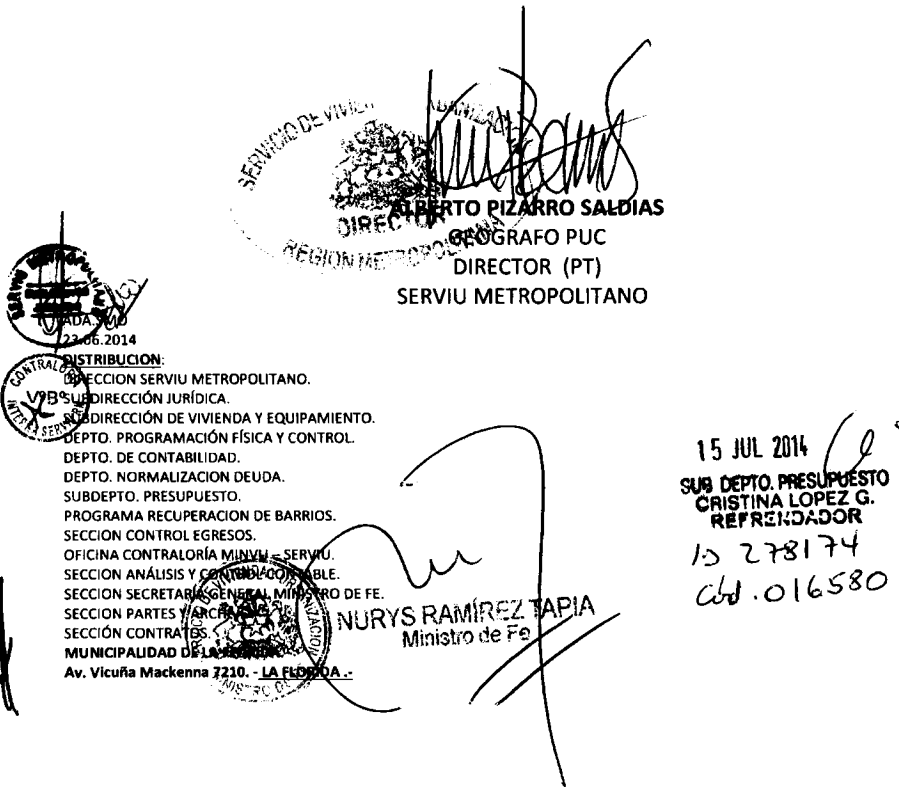 SERVICIO DE VIVIENDA
DIRECTOR
REGION METROPOLITANA
ALBERTO PIZARRO SALDIAS
GEOGRAFO PUC
DIRECTOR (PT)
SERVIU METROPOLITANO
SERVIU METROPOLITANO
23.06.2014
DISTRIBUCION:
DIRECCION SERVIU METROPOLITANO.
CONTRALORIA
VºBº
SUBDIRECCIÓN JURÍDICA.
SUBDIRECCIÓN DE VIVIENDA Y EQUIPAMIENTO.
DEPTO. PROGRAMACIÓN FÍSICA Y CONTROL.
DEPTO. DE CONTABILIDAD.
DEPTO. NORMALIZACION DEUDA.
SUBDEPTO. PRESUPUESTO.
PROGRAMA RECUPERACION DE BARRIOS.
SECCION CONTROL EGRESOS.
OFICINA CONTRALORÍA MINVU – SERVIU.
SECCION ANÁLISIS Y CONTROL CONTABLE.
SECCION SECRETARÍA GENERAL MINISTRO DE FE.
SECCION PARTES Y ARCHIVO
SECCIÓN CONTRATOS.
MUNICIPALIDAD DE LA FLORIDA
Av. Vicuña Mackenna 7210. - LA FLORIDA .-
NURYS RAMÍREZ TAPIA
Ministro de Fe
15 JUL 2014
SUB DEPTO. PRESUPUESTO
CRISTINA LOPEZ G.
REFRENDADOR
ID 278174
Cód. 016580